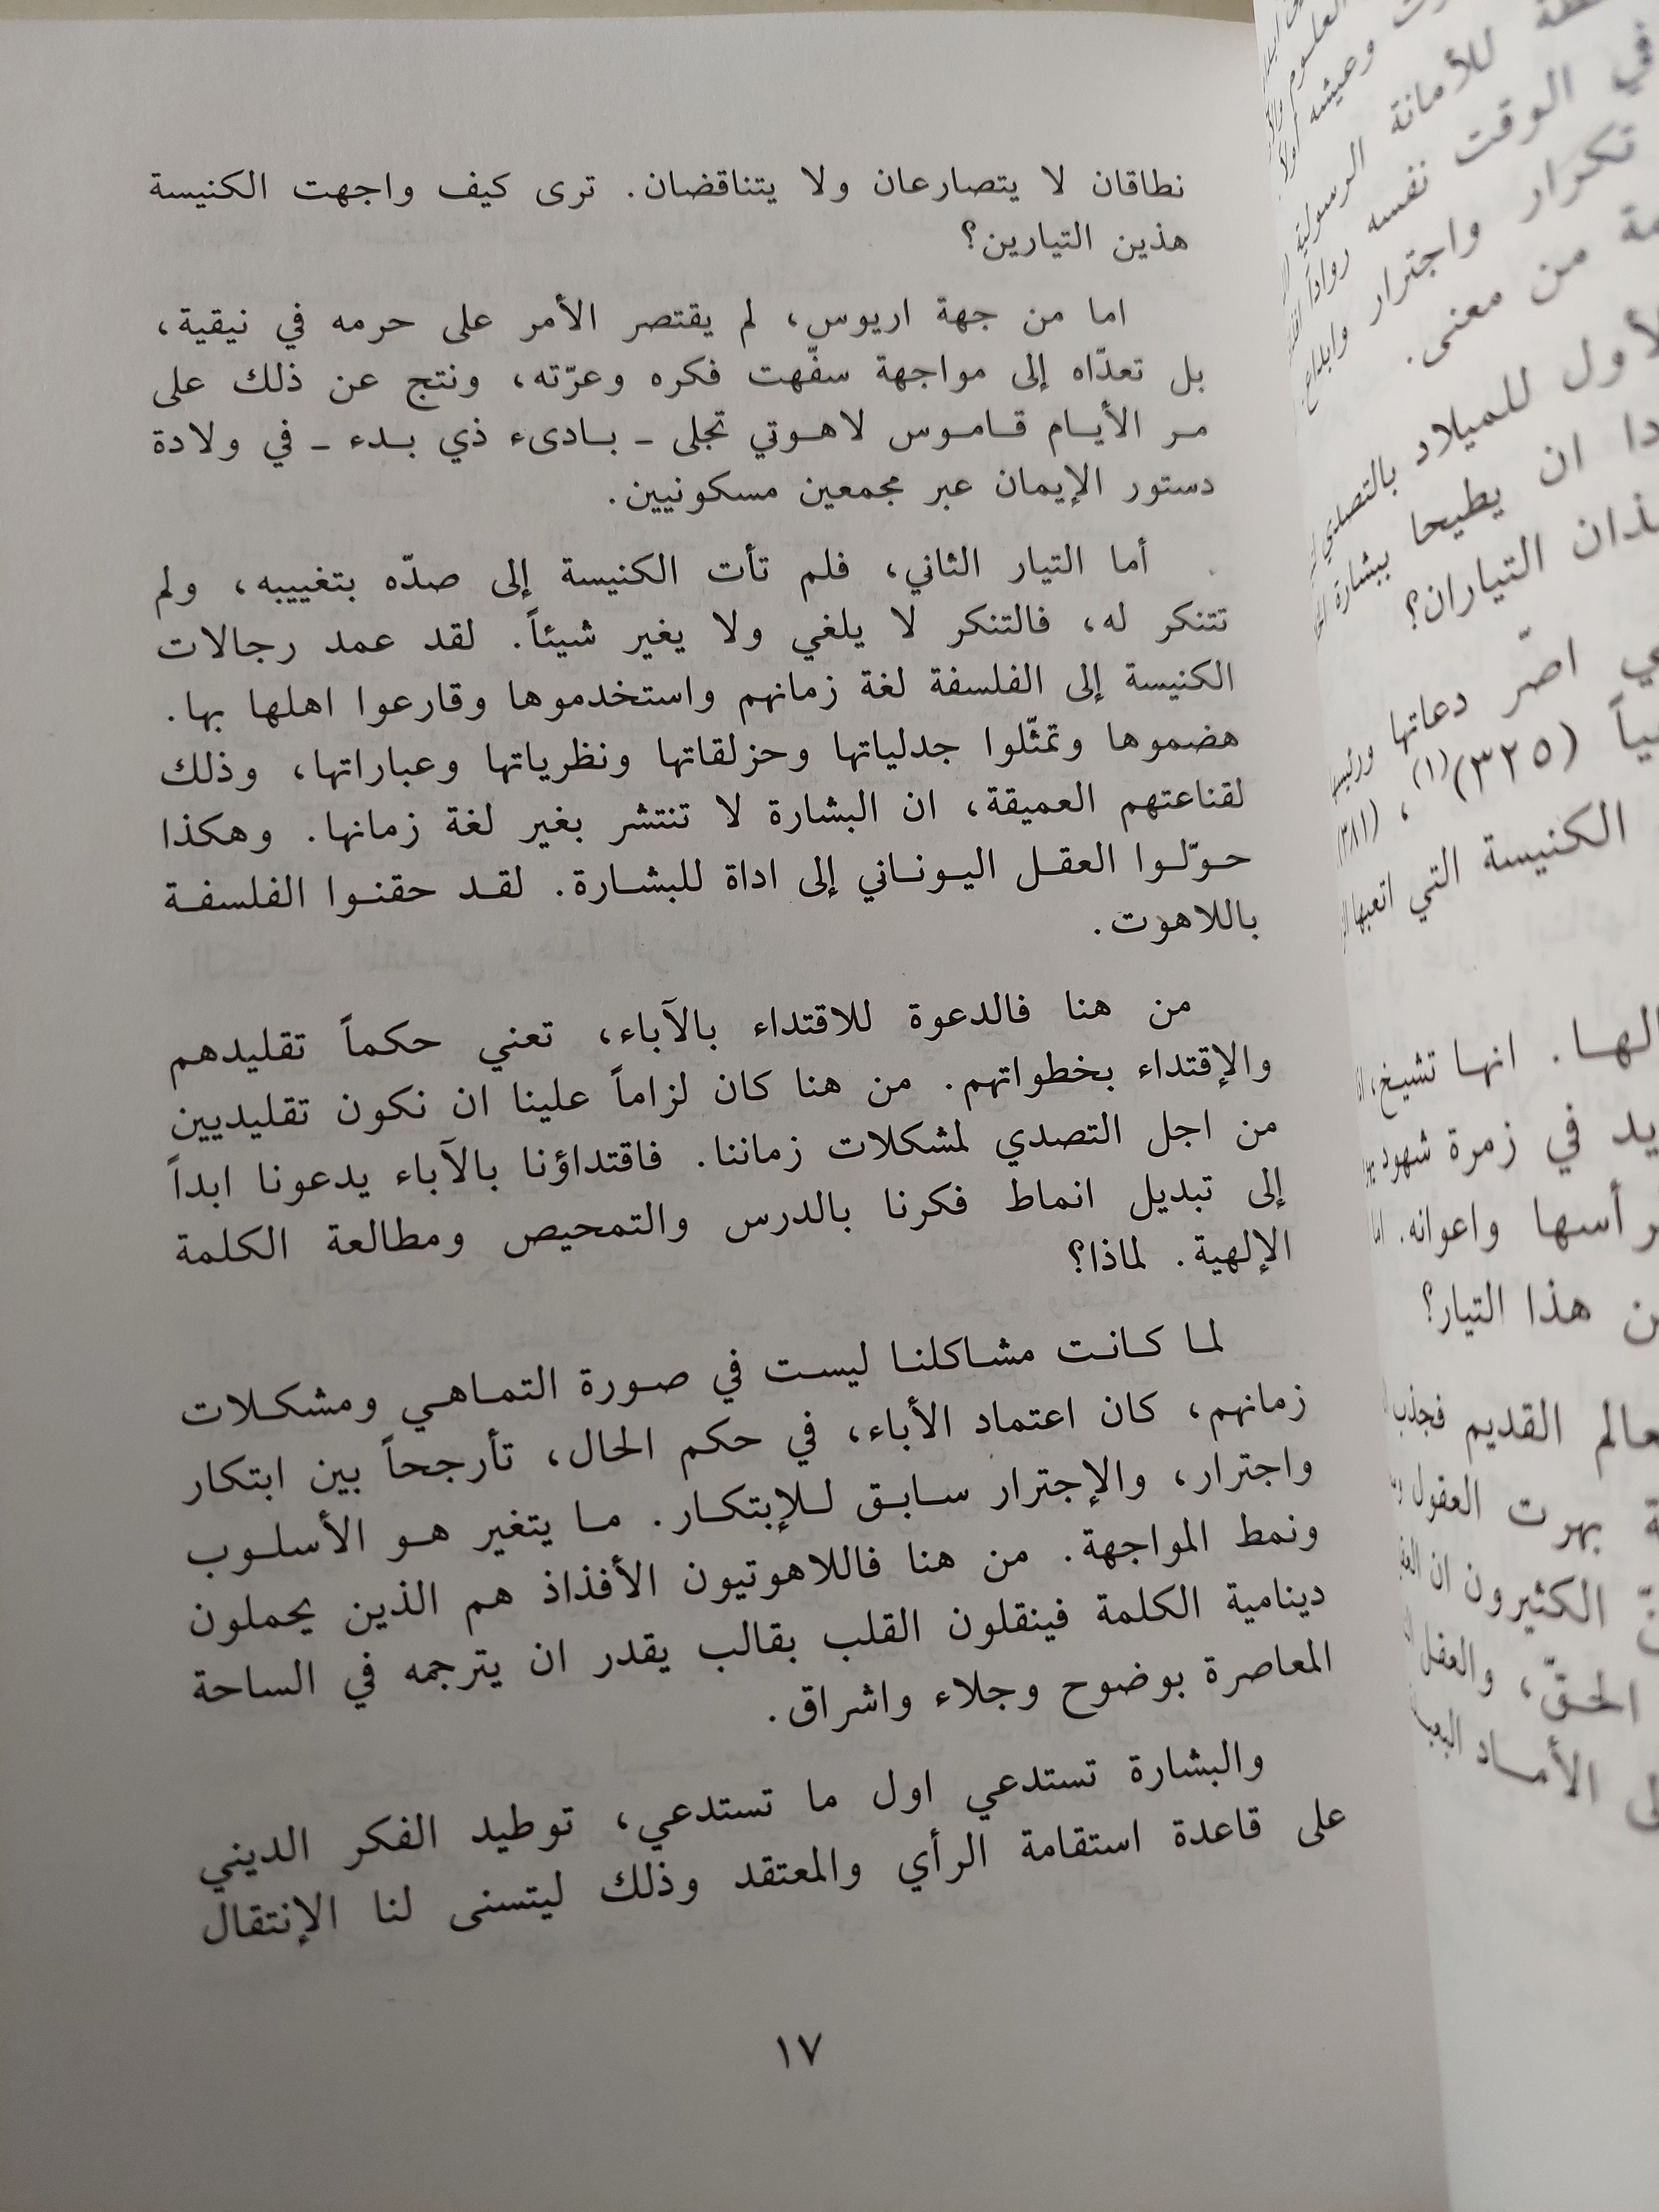 نطاقان لا يتصارعان ولا يتناقضان. ترى كيف واجهت الكنيسة
هذين التيارين؟
اما من جهة اريوس، لم يقتصر الأمر على حرمه في نيقية،
بل تعدّاه إلى مواجهة سفّهت فكره وعرّته، ونتج عن ذلك على
مر الأيام قاموس لاهوتي تجلى ـ بادىء ذي بدء ـ في ولادة
دستور الإيمان عبر مجمعين مسكونيين.
أما التيار الثاني، فلم تأت الكنيسة إلى صدّه بتغييبه، ولم
تتنكر له، فالتنكر لا يلغي ولا يغير شيئاً. لقد عمد رجالات
الكنيسة إلى الفلسفة لغة زمانهم واستخدموها وقارعوا اهلها بها.
هضموها وتمثّلوا جدلياتها وحزلقاتها ونظرياتها وعباراتها، وذلك
لقناعتهم العميقة، ان البشارة لا تنتشر بغير لغة زمانها. وهكذا
حوّلوا العقل اليوناني إلى اداة للبشارة. لقد حقنوا الفلسفة
باللاهوت.
من هنا فالدعوة للاقتداء بالآباء، تعني حكماً تقليدهم
والإقتداء بخطواتهم. من هنا كان لزاماً علينا ان نكون تقليديين
من اجل التصدي لمشكلات زماننا. فاقتداؤنا بالآباء يدعونا ابداً
إلى تبديل انماط فكرنا بالدرس والتمحيص ومطالعة الكلمة
الإلهية. لماذا؟
لما كانت مشاكلنا ليست في صورة التماهي ومشكلات
زمانهم، كان اعتماد الأباء، في حكم الحال، تأرجحاً بين ابتكار
واجترار، والإجترار سابق للإبتكار. ما يتغير هو الأسلوب
ونمط المواجهة. من هنا فاللاهوتيون الأفذاذ هم الذين يحملون
دينامية الكلمة فينقلون القلب بقالب يقدر ان يترجمه في الساحة
المعاصرة بوضوح وجلاء واشراق.
والبشارة تستدعي اول ما تستدعي، توطيد الفكر الديني
على قاعدة استقامة الرأي والمعتقد وذلك ليتسنى لنا الإنتقال
١٧
للأمانة الرسولية
في الوقت نفسه رواداً
تكرار واجترار وابداع
من معنى.
للميلاد بالتصدي
ان يطيحا ببشارة
التياران؟
اصّر دعاتها
(٣٢٥)(١)، (٣٨١)
الكنيسة التي اتعبها
انها تشيخ،
في زمرة شهود
واعوانه. اما
هذا التيار؟
القديم فجذب
بهرت العقول
الكثيرون ان
الحقّ، والعقل